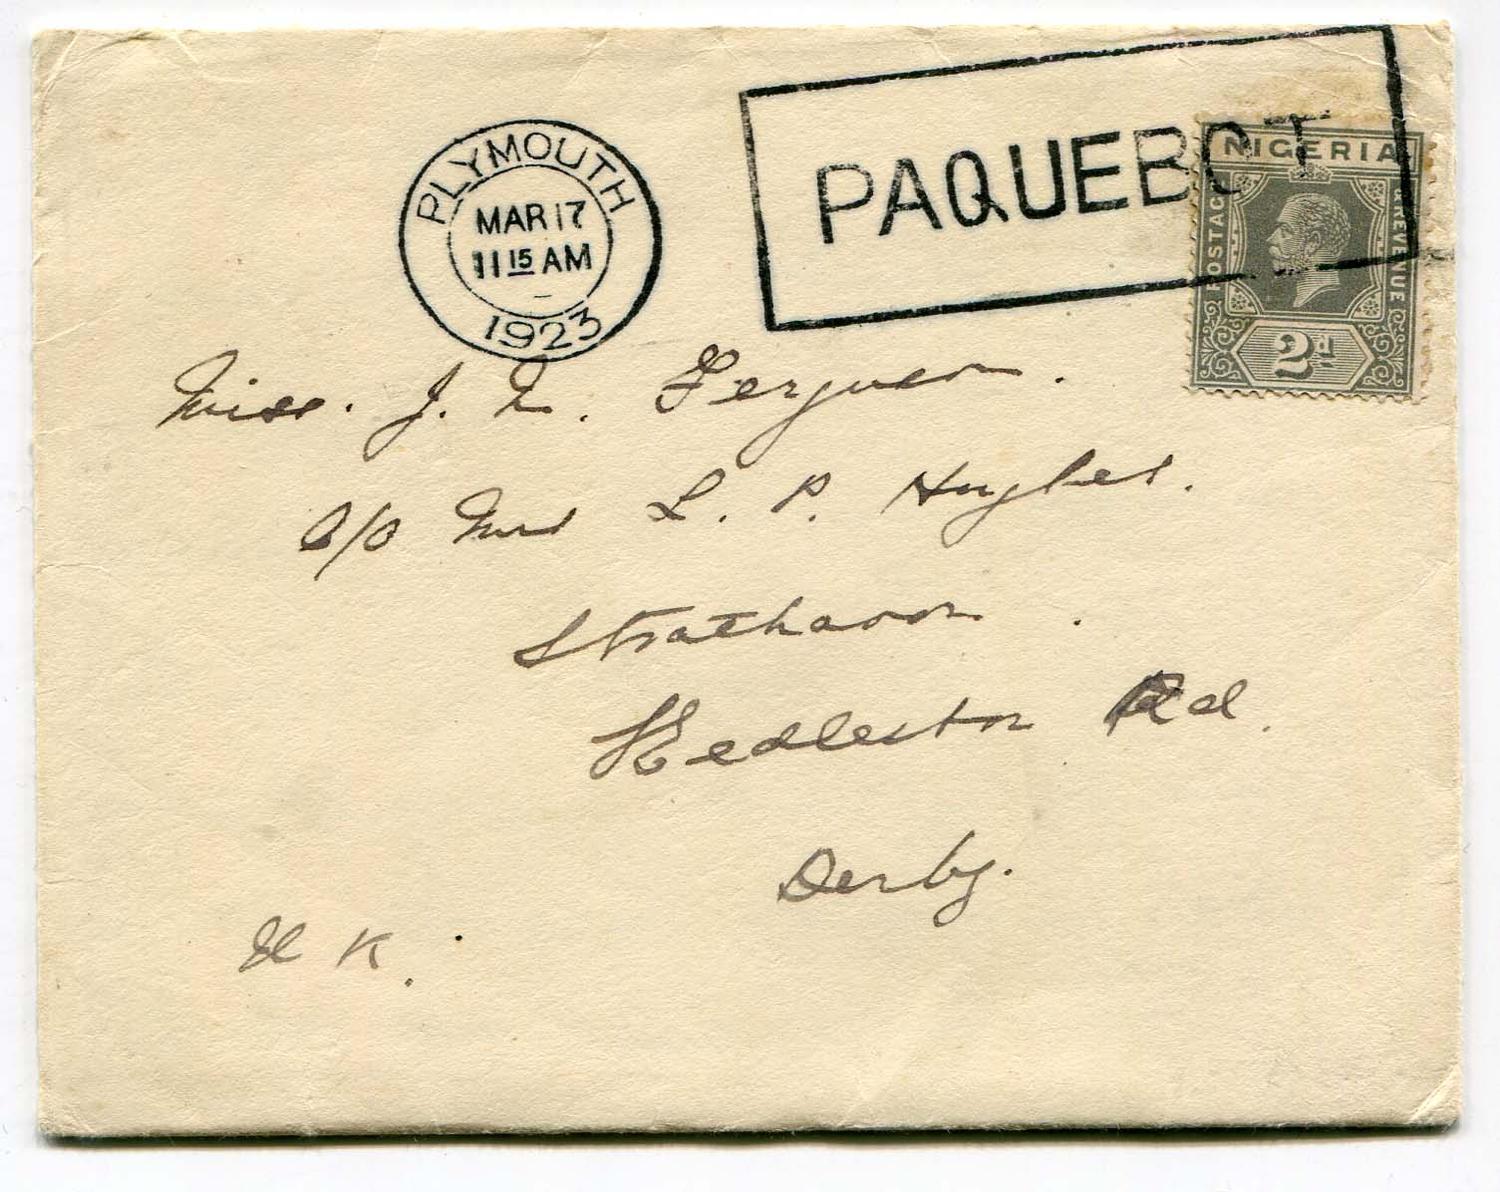 PLYMOUTH
MAR 17
11 15 AM
1923
PAQUEBOT
NIGERIA
POSTAGE & REVENUE
2d
Miss. J. M. Ferguson.
C/o Mrs L. P. Hughes.
Strathavon.
Kedleston Rd.
Derby.
U K.